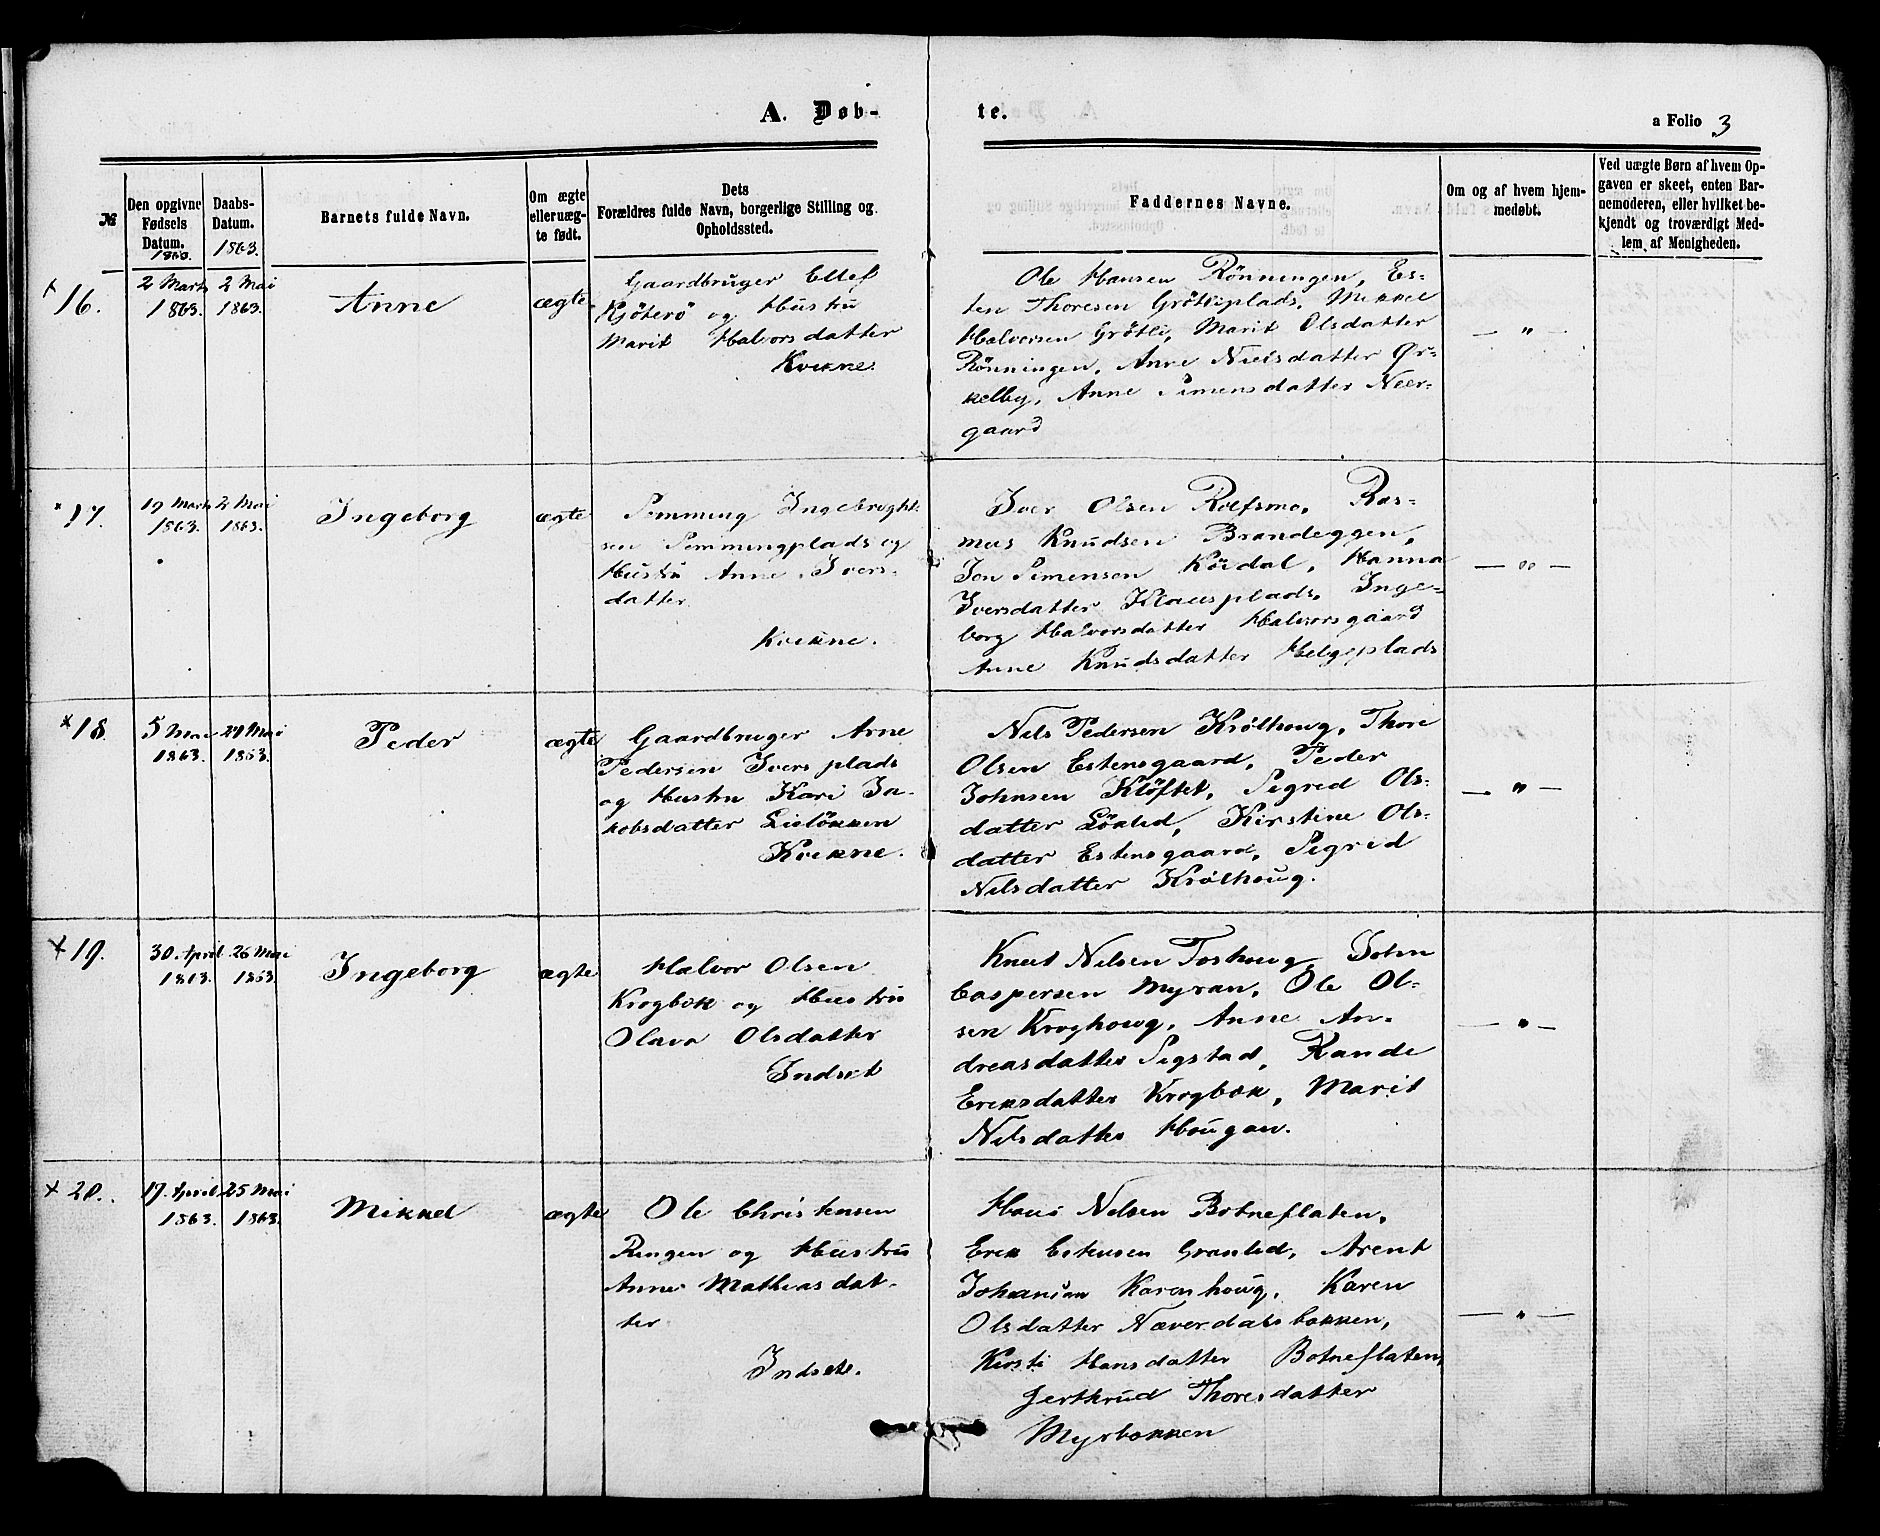 A. Døb-
te.
a Folio 3
№
Den opgivne
Fødsels
Datum.
1863.
Daabs-
Datum.
1863.
Barnets fulde Navn.
Om ægte
eller uæg-
te født.
Dets
Forældres fulde Navn, borgerlige Stilling og
Opholdssted.
Faddernes Navne.
Om og af hvem hjem-
medøbt.
Ved uægte Børn af hvem Op-
gaven er skeet, enten Bar-
nemoderen, eller hvilket be-
kjendt og troværdigt Med-
lem af Menigheden.
× 16.
2 Marts
1863.
2 Mai
1863.
Anne
ægte
Gaardbruger Ellef
Kjøterø og Hustru
Marit Halvorsdatter
Kvikne.
Ole Hansen Rönningen, Es-
ten Thoresen Grötliplads, Mikkel
Halvorsen Grötli, Marit Olsdatter
Rönningen, Anne Nielsdatter Ør-
kelby, Anne Simensdatter Neer-
gaard
— " —
× 17.
19 Marts
1863.
2 Mai
1863.
Ingeborg
ægte
Semming Ingebreght-
sen Semmingplads og
Hustru Anne Ivers-
datter
Kvikne.
Iver Olsen Rolfsmo, Ras-
mus Knudsen Brandeggen,
Jon Simensen Köidal, Hanna
Iversdatter Klausplads, Inge-
borg Halvorsdatter Halvorsgaard
Anne Knudsdatter Helgeplads
— " —
× 18.
5 Mai
1863.
24 Mai
1863.
Peder
ægte
Gaardbruger Arne
Pedersen Iversplads
og Hustru Kari Ja-
kobsdatter Lielökken
Kvikne.
Nils Pedersen Krölhoug, Thore
Olsen Estensgaard, Peder
Johnsen Klöftet, Sigrid Ols-
datter Lönlid, Kirstine Ols-
datter Estensgaard, Sigrid
Nilsdatter Krölhoug.
— " —
× 19.
30 April
1863.
26 Mai
1863.
Ingeborg
ægte
Halvor Olsen
Krogbæk og Hustru
Olava Olsdatter
Indset
Knut Nilsen Toshoug, John
Caspersen Myran, Ole Ol-
sen Kroghoug, Anne An-
dreasdatter Sigstad, Rande
Eriksdatter Krogbæk, Marit
Nilsdatter Hougan.
— " —
× 20.
17. April
1863.
25 Mai
1863.
Mikkel
ægte
Ole Christensen
Ringen og Hustru
Anne Mathiasdat-
ter
Indset.
Hans Nilsen Botneflaten,
Erik Estensen Granlid, Arent
Johansen Karenhoug, Karen
Olsdatter Næverdalsbakken,
Kirsti Hansdatter Botneflaten,
Jerthrud Thoresdatter
Myrbakken
— " —